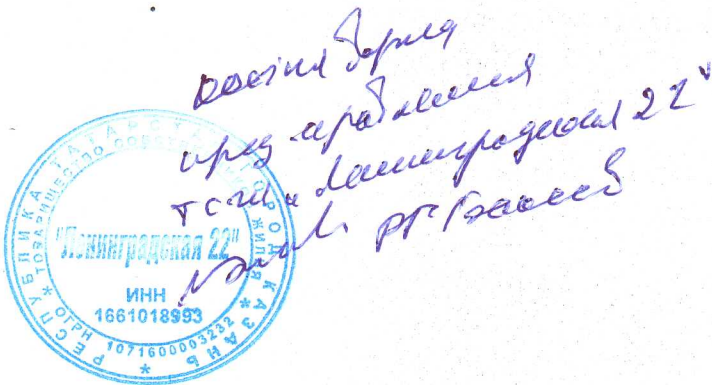 Копия верна
пред правления
ТСЖ "Ленинградская 22"
РЕСПУБЛИКА ТАТАРСТАН ГОРОД КАЗАНЬ
ТОВАРИЩЕСТВО СОБСТВЕННИКОВ ЖИЛЬЯ
"Ленинградская 22"
ИНН
1661018993
ОГРН 1071600003232